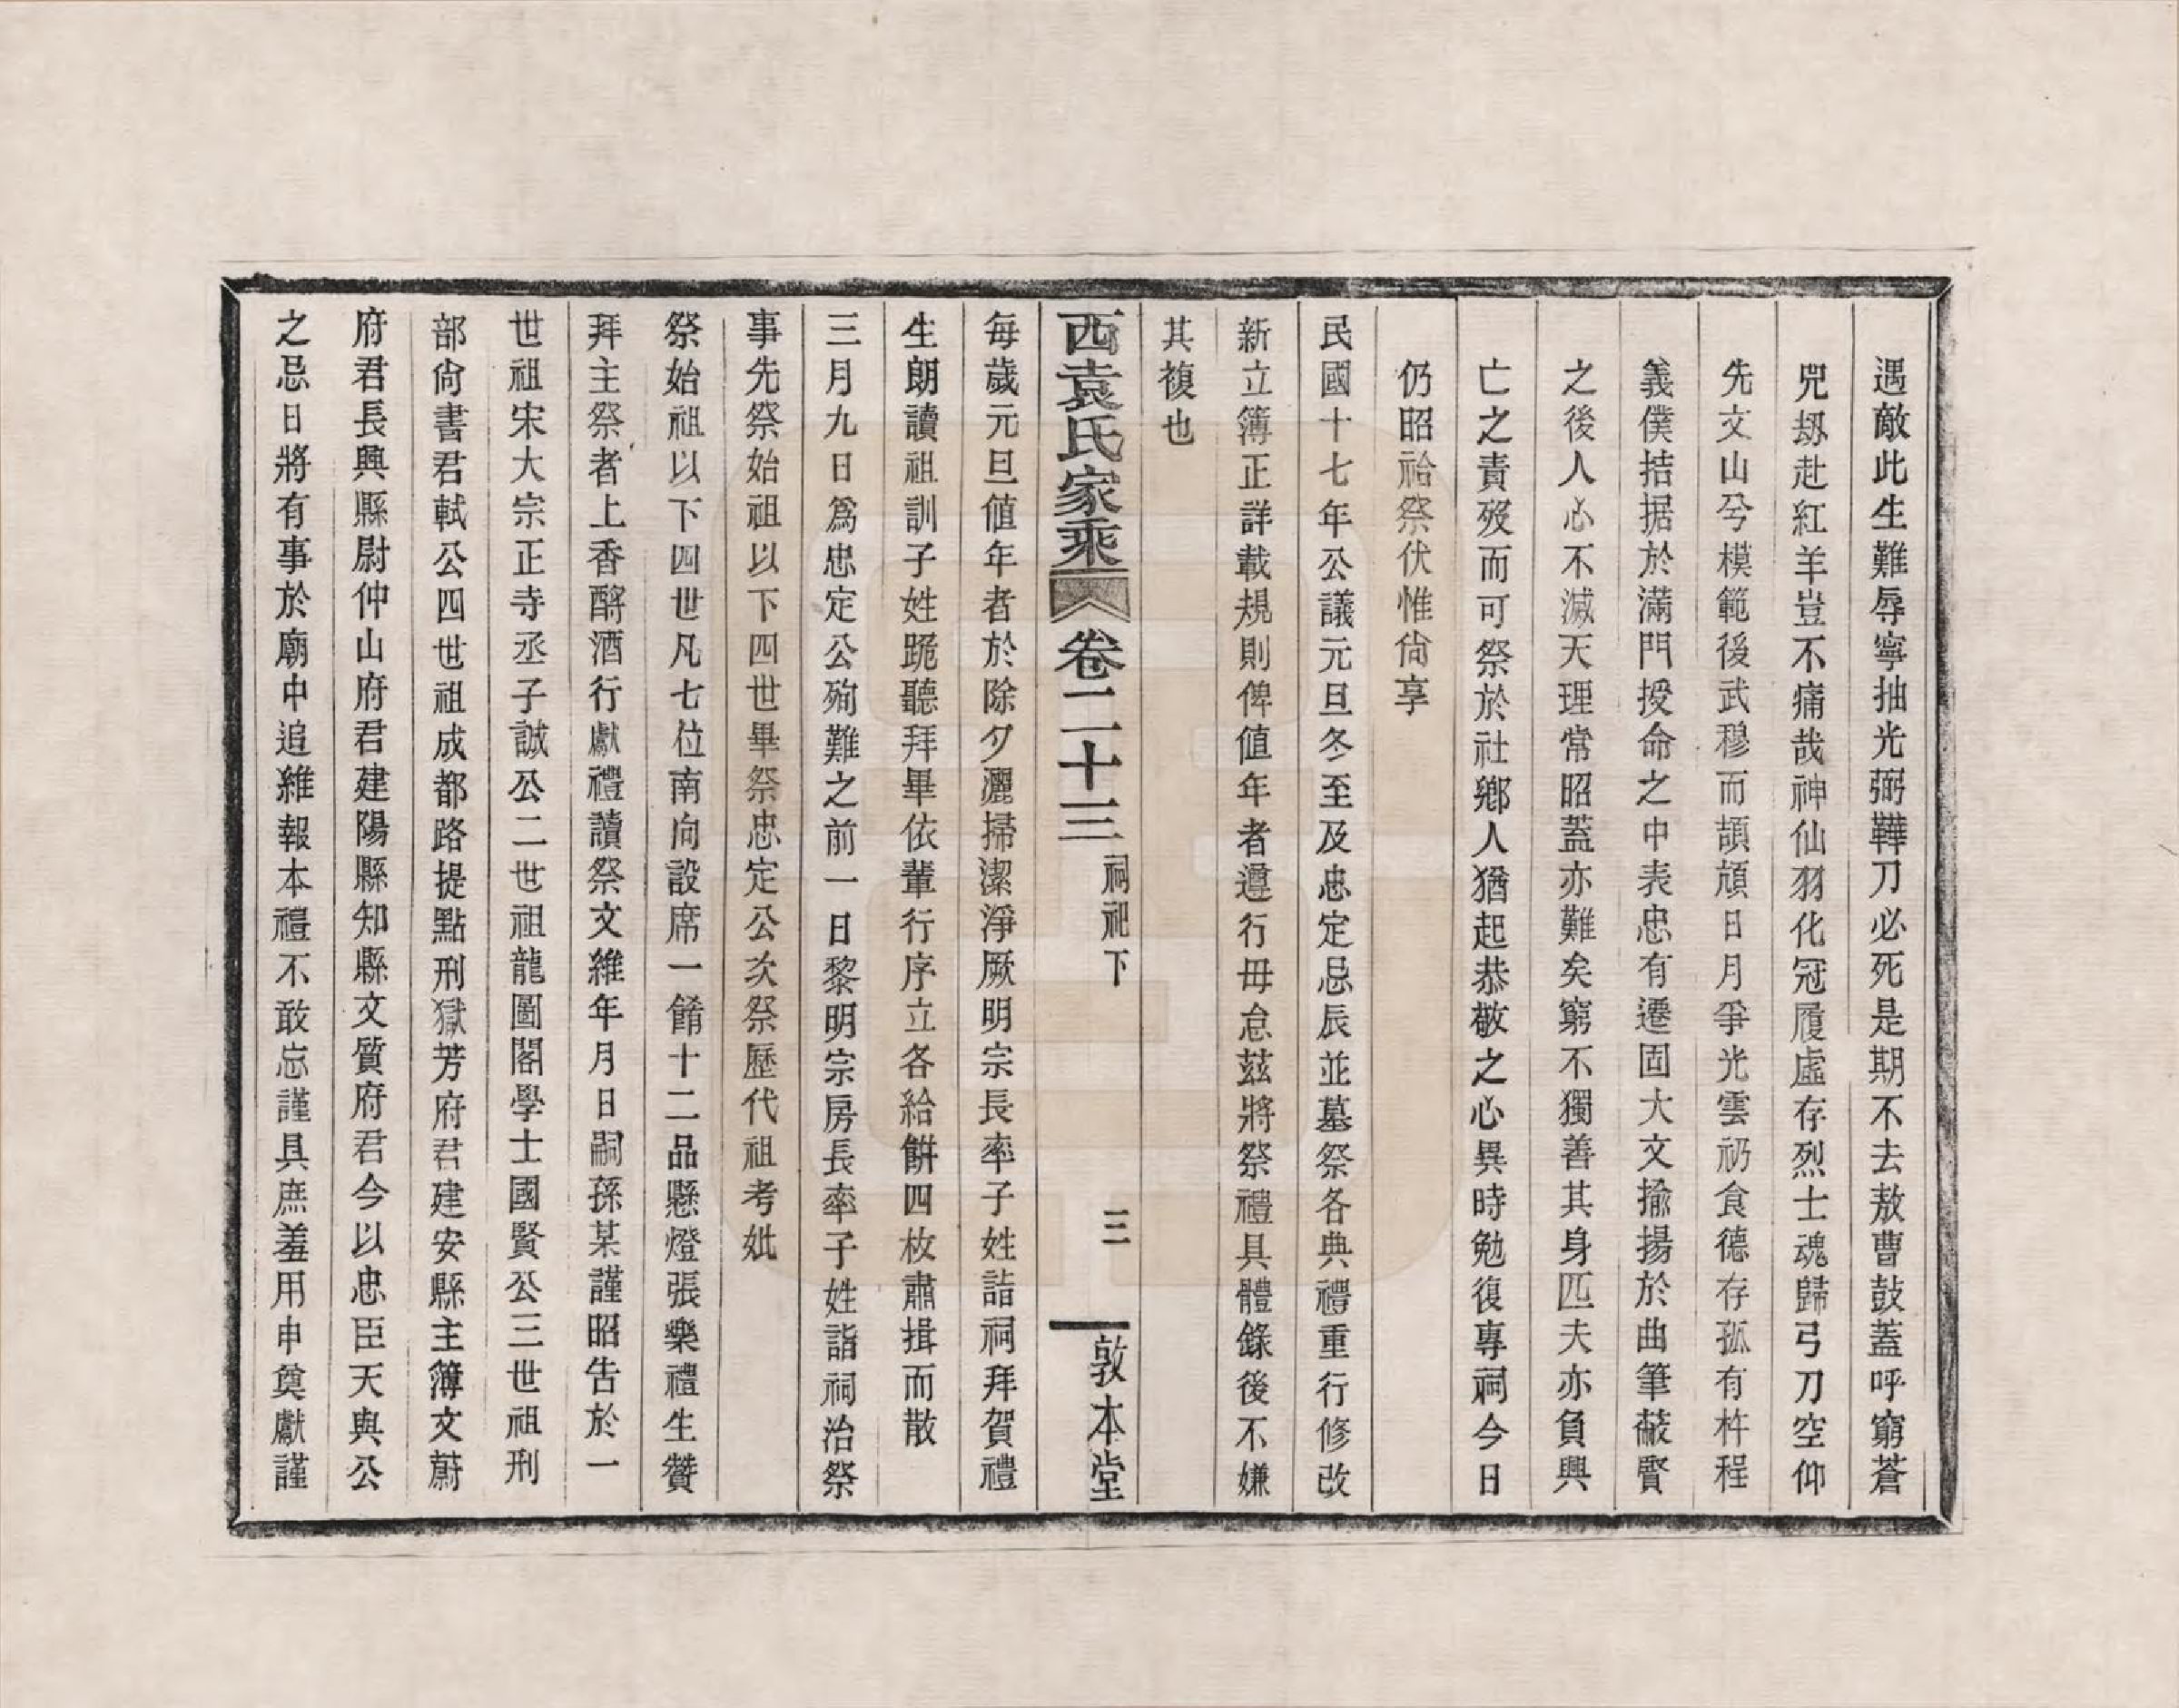 遇敵此生難辱寧抽光弼鞾刀必死是期不去敖曹鼓蓋呼窮蒼
兕刼赴紅羊豈不痛哉神仙羽化冠履虛存烈士魂歸弓刀空仰
先文山兮模範後武穆而頡頏日月爭光雲礽食德存孤有杵程
義僕拮据於滿門授命之中表忠有遷固大文揄揚於曲筆蔽賢
之後人心不滅天理常昭蓋亦難矣窮不獨善其身匹夫亦負興
亡之責歿而可祭於社鄉人猶起恭敬之心異時勉復專祠今日
仍昭祫祭伏惟尙享
民國十七年公議元旦冬至及忠定忌辰並墓祭各典禮重行修改
新立簿正詳載規則俾値年者遵行毋怠茲將祭禮具體錄後不嫌
其複也
西袁氏家乘 卷二十三 祠祀下 三 敦本堂
每歲元旦値年者於除夕灑掃潔淨厥明宗長率子姓詣祠拜賀禮
生朗讀祖訓子姓跪聽拜畢依輩行序立各給餠四枚肅揖而散
三月九日爲忠定公殉難之前一日黎明宗房長率子姓詣祠治祭
事先祭始祖以下四世畢祭忠定公次祭歷代祖考妣
祭始祖以下四世凡七位南向設席一餚十二品懸燈張樂禮生贊
拜主祭者上香酹酒行獻禮讀祭文維年月日嗣孫某謹昭告於一
世祖宋大宗正寺丞子誠公二世祖龍圖閣學士國賢公三世祖刑
部尙書君軾公四世祖成都路提點刑獄芳府君建安縣主簿文蔚
府君長興縣尉仲山府君建陽縣知縣文質府君今以忠臣天與公
之忌日將有事於廟中追維報本禮不敢忘謹具庶羞用申奠獻謹